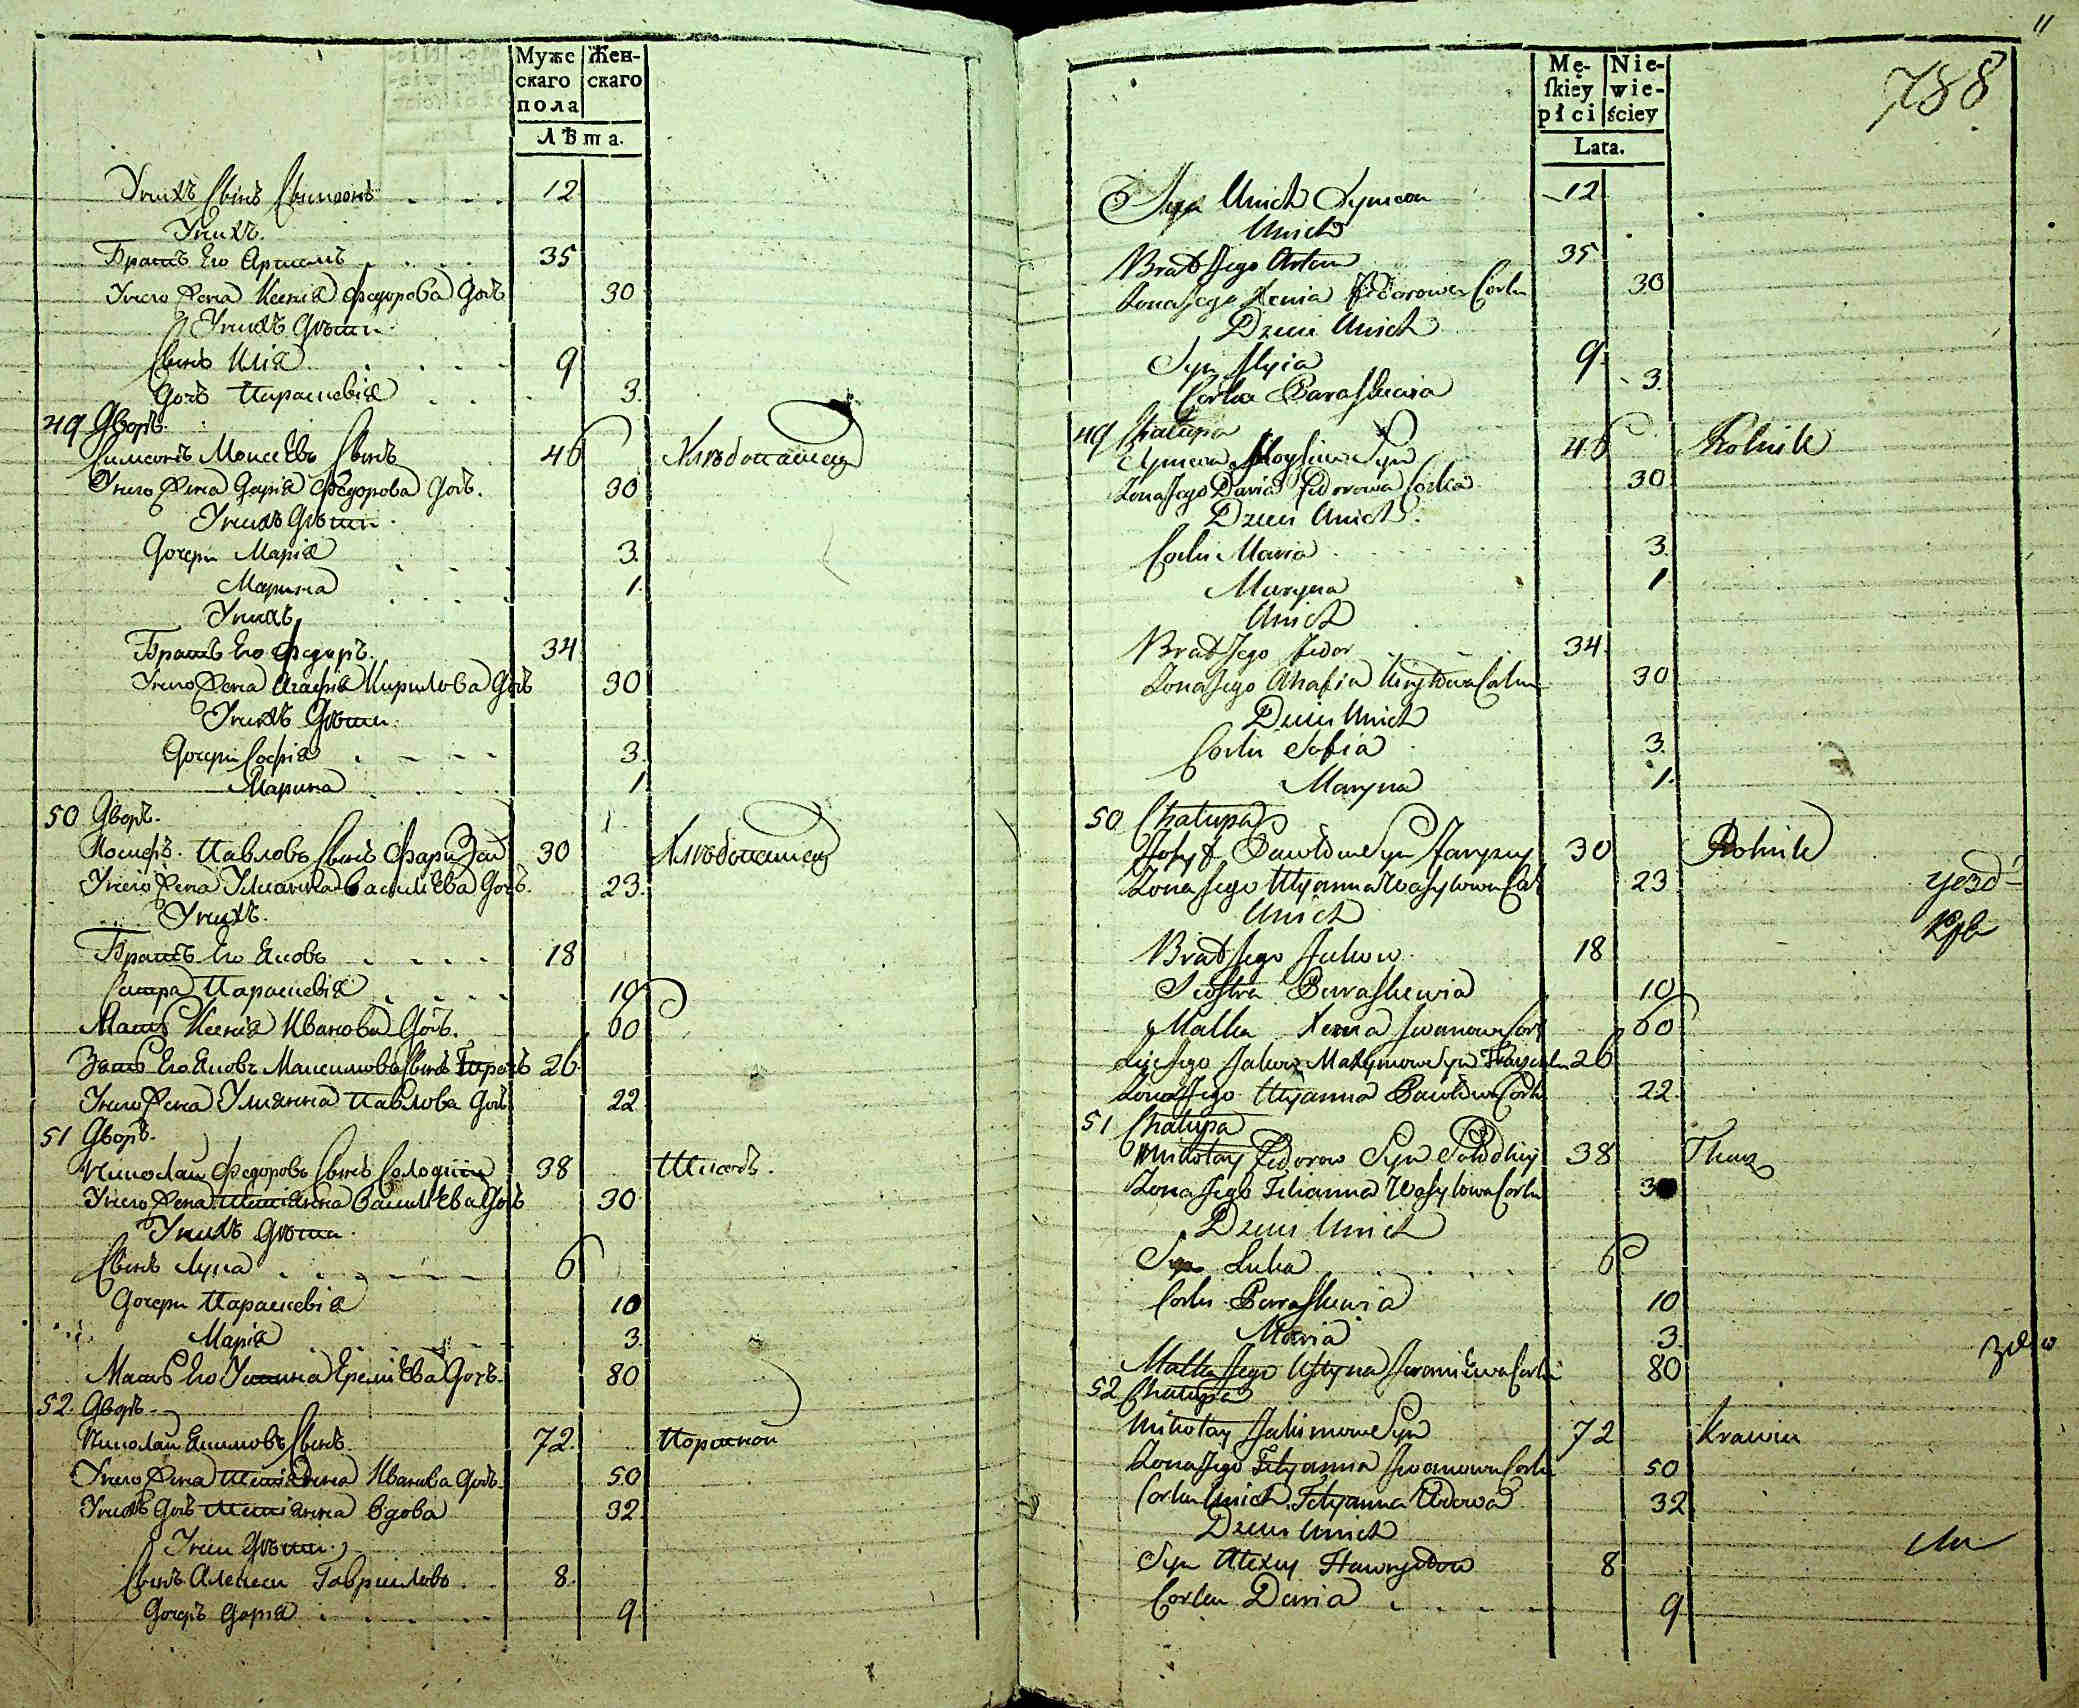 Муже скаго пола
Жен- скаго
Лѣта.
Унихъ Сынъ Сымеонъ 12
Унихъ.
Братъ Его Артемъ 35
Унего Жена Ксенiя Федорова Дочь 30
Унихъ Дѣти
Сынъ Илiя 9
Дочь Параскевiя 3.
49 Дворъ.
Симеонъ Моисеевъ Сынъ 46 Хлѣбопашец
Унего Жена Дарiя Федорова Дочь. 30
Унихъ Дѣти
Дочери Марiя 3.
Марина 1.
Унихъ
Братъ Его Федоръ. 34
Унего Жена Агафiя Кирилова Дочь 30
Унихъ Дѣти.
Дочери Софiя 3.
Марина 1
50 Дворъ.
Иосифъ Павловъ Сынъ 30 Хлѣбопашец
Унего Жена Улианна Василiева Дочь. 23.
Унихъ.
Братъ Его Яковъ 18
Сестра Параскевiя 10
Мать Ксенiя Иванова Дочь. 60
Зять Его Яковъ Максимовъ Сынъ 26
Унего Жена Улиянна Павлова Дочь 22
51 Дворъ.
Николай Федоровъ Сынъ Солодкiй 38 Ткачъ.
Унего Жена Татiянна Василiева Дочь 30
Унихъ Дѣти.
Сынъ Лука 6
Дочери Параскевiя 10
Марiя 3.
Мать Его Устина Еремiева Дочь. 80
52. Дворъ.
Николай Якимовъ Сынъ. 72. Портной
Унего Жена Татiянна Иванова Дочь. 50
Унихъ Дочь Татiянна Вдова 32.
Уней Дѣти.
Сынъ Алексеи Гаврилловъ 8.
Дочерь Дарiя 9.
11
788
Mę- ſkiey płci
Nie- wie- ściey
Lata.
Syn Unich Symeon 12
Unich
Brat Jego Artem 35
Zona Jego Xenia Fedorowa Corka 30
Dzieci Unich
Syn Ilyia 9.
Corka Paraskewia 3.
49 Chalupa
Symeon Moysiiow Syn 46 Rolnik
Zona Jego Daria Fedorowa Corka 30
Dzieci Unich.
Corki Maria 3.
Maryna 1
Unich
Brat Jego Fedor 34.
Zona Jego Ahafia Kiryłowa Corka 30
Dzieci Unich
Corki Sofia 3.
Maryna 1.
50 Chalupa
Josyf Pawłow Syn 30 Rolnik
Zona Jego Ulyanna Wasylowa Cor 23
Unich
Brat Jego Jakow 18
Siostra Paraskewia 10
Matka Xenia Iwanowa Cor 60
Zięc Jego Jakow Maxymow Syn 26
Zona Jego Ulyanna Pawłowa Corka 22.
51 Chalupa
Mikołay Fedorow Syn Sołodkiy 38 Tkacz
Zona Jego Tetianna Wasylowa Corka 30
Dzieci Unich
Syn Luka 6
Corki Paraskewia 10
Maria 3.
Matka Jego Ustyna Corka 80
52 Chalupa
Mikołay Jakimow Syn 72 Krawiec
Zona Jego Tetyanna Iwanowa Corka 50
Corka Unich Tetyanna Wdowa 32
Dzieci Unich
Syn Alexiy Hawryłow 8
Corka Daria 9